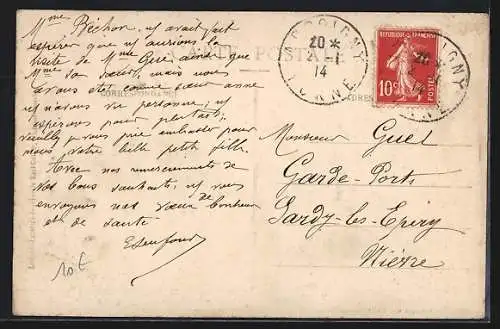 Mme Bichon, ns avait fait
espérer que ns aurions la
visite de Mr Guel ainsi que
Mme sa sœur, mais nous
avons été comme sœur anne
ns n'avons vu personne; ns
espérons pour plus tard;
veuillez je vous prie embrasser pour
nous votre belle petite fille.
Avec nos remerciements de
vos bons souhaits; ns vous
envoyons nos vœux de bonheur
et de santé
CARTE POSTALE
CORRESPONDANCE
20 *
14
ORNE
RÉPUBLIQUE FRANÇAISE
10c
POSTES
Monsieur Guel
Garde-Ports
Sardy-les-Epiry
Nièvre
10 €